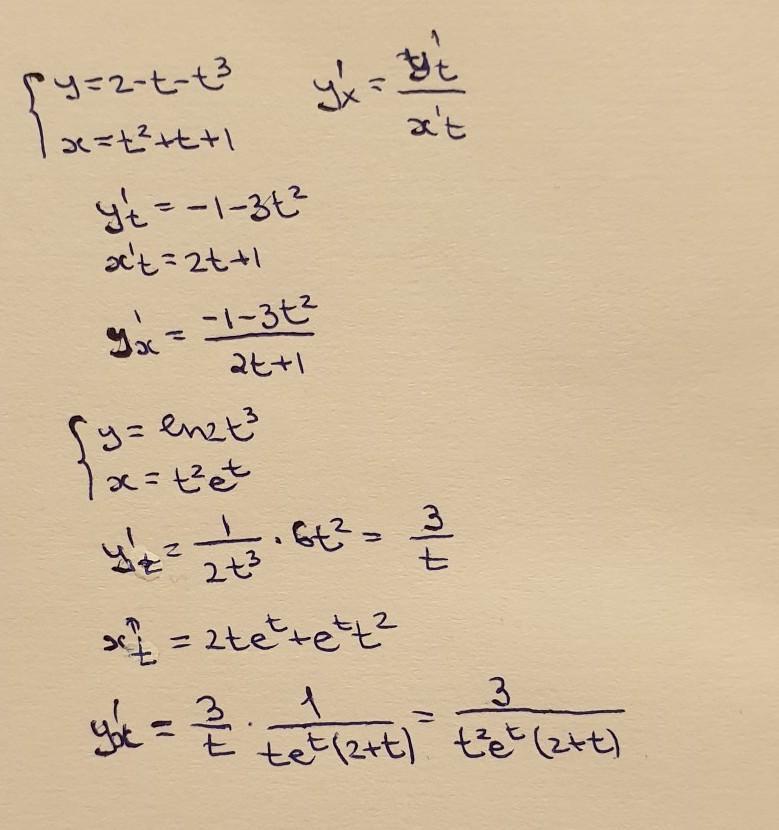 { y = 2 - t - t³    y'ₓ = y'ₜ / x'ₜ
x = t² + t + 1
y'ₜ = -1 - 3t²
x'ₜ = 2t + 1
y'ₓ = (-1 - 3t²) / (2t + 1)
{ y = ln 2t³
x = t²eᵗ
y'ₜ = 1 / 2t³ · 6t² = 3 / t
x'ₜ = 2teᵗ + eᵗt²
y'ₓ = 3 / t · 1 / teᵗ(2+t) = 3 / t²eᵗ(2+t)